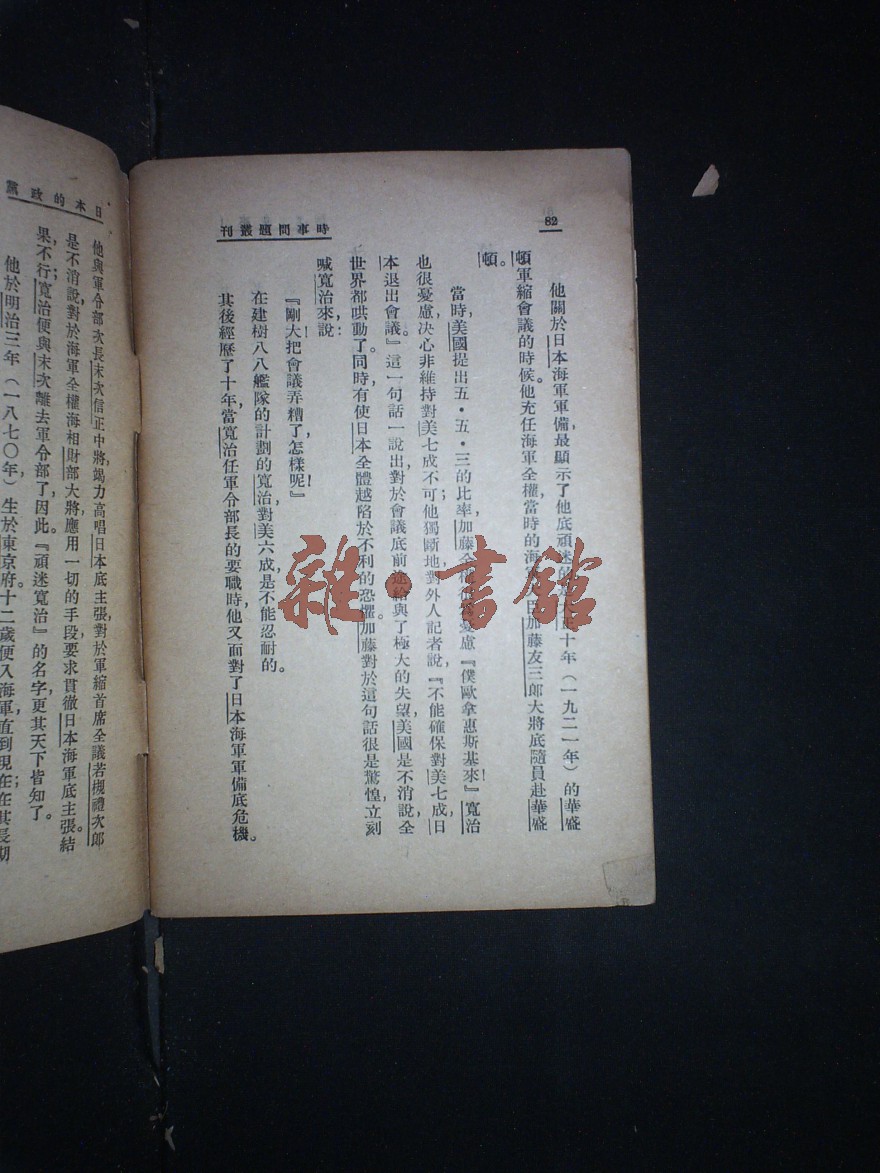 82
時事問題叢刊
他關於日本海軍軍備，最顯示了他底頑迷的是大正十年（一九二一年）的華盛
頓軍縮會議的時候。他充任海軍全權，當時的海軍大臣加藤友三郎大將底隨員赴華盛
頓。
當時，美國提出五・五・三的比率，加藤全權很爲憂慮『僕歐拿惠斯基來！』寬治
也很憂慮，決心非維持對美七成不可，他獨斷地對外人記者說，『不能確保對美七成，日
本退出會議』。這一句話一說出，對於會議底前途給與了極大的失望，美國是不消說，全
世界都哄動了。同時，有使日本全體越陷於不利的恐懼，加藤對於這句話很是驚惶，立刻
喊寬治來，說：
『剛大把會議弄糟了，怎樣呢！』
在建樹八八艦隊的計劃的寬治，對美六成是不能忍耐的。
其後經歷了十年，當寬治任軍令部長的要職時，他又面對了日本海軍軍備底危機。
日本的政黨
他與軍令部次長末次信正中將，竭力高唱日本底主張，對於軍縮首席全議若槻禮次郎
是不消說，對於海軍全權海相財部大將，應用一切的手段，要求貫徹日本海軍底主張。結
果不行；寬治便與末次離去軍令部了。因此，『頑迷寬治』的名字，更其天下皆知了。
他於明治三年（一八七〇年）生於東京府。十二歲便入海軍，直到現在；在其長期
雜・書館